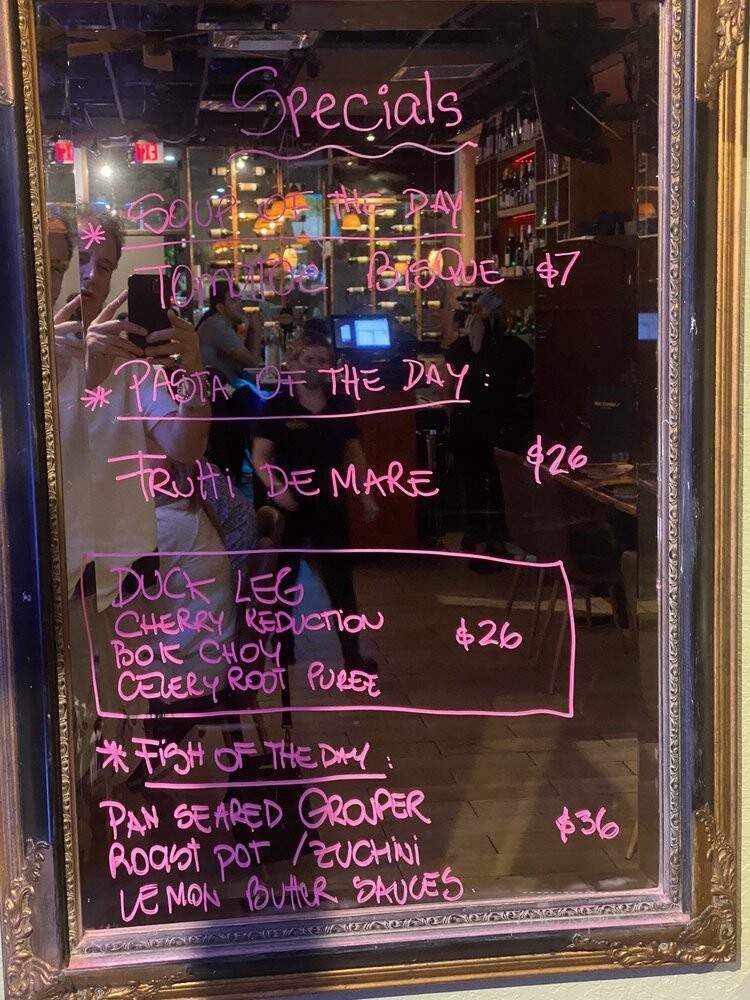 Specials
* SOUP OF THE DAY
TOMATOE BISQUE $7
* PASTA OF THE DAY:
FRUTTI DE MARE $26
DUCK LEG
CHERRY REDUCTION $26
BOK CHOY
CELERY ROOT PUREE
* FISH OF THE DAY:
PAN SEARED GROUPER
ROAST POT / ZUCHINI $36
LEMON BUTTER SAUCES.